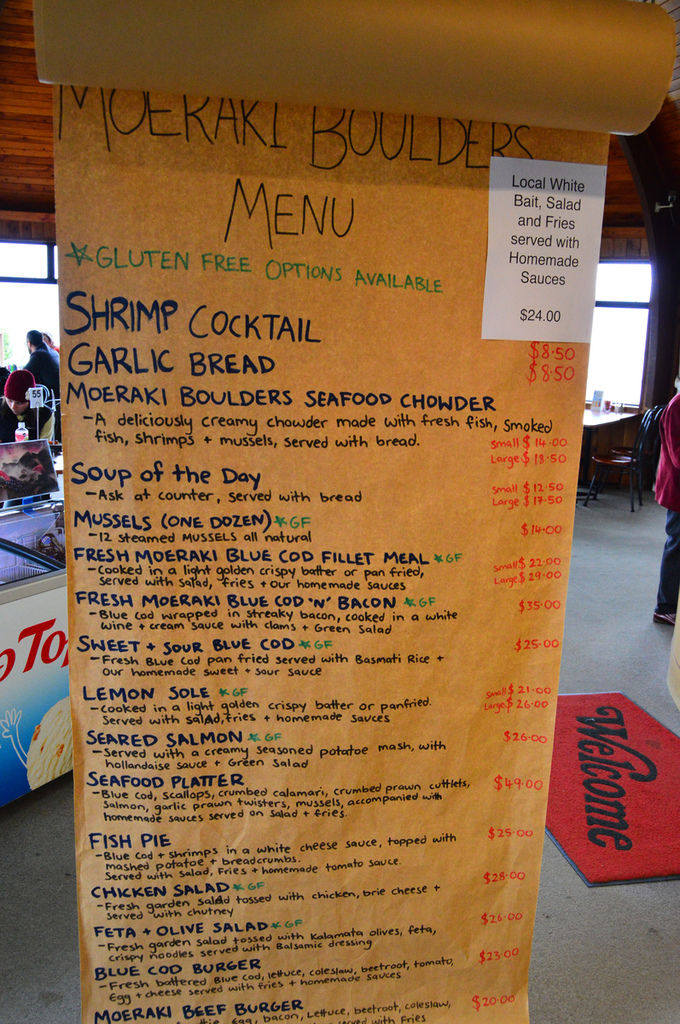 MOERAKI BOULDERS
MENU
Local White
Bait, Salad
and Fries
served with
Homemade
Sauces
$24.00
*GLUTEN FREE OPTIONS AVAILABLE
SHRIMP COCKTAIL $8.50
GARLIC BREAD $8.50
MOERAKI BOULDERS SEAFOOD CHOWDER
-A deliciously creamy chowder made with fresh fish, smoked
fish, shrimps + mussels, served with bread. small $14.00
Large $18.50
SOUP OF THE DAY small $12.50
-Ask at counter, served with bread Large $17.50
MUSSELS (ONE DOZEN) *GF $14.00
-12 steamed MUSSELS all natural
FRESH MOERAKI BLUE COD FILLET MEAL *GF small $22.00
-Cooked in a light golden crispy batter or pan fried, Large $29.00
served with salad, fries + our homemade sauces
FRESH MOERAKI BLUE COD 'N' BACON *GF $35.00
-Blue Cod wrapped in streaky bacon, cooked in a white
wine + cream sauce with clams + Green Salad
SWEET + SOUR BLUE COD *GF $25.00
-Fresh Blue Cod pan fried served with Basmati Rice +
our homemade sweet + sour sauce
LEMON SOLE *GF small $21.00
-Cooked in a light golden crispy batter or panfried. Large $26.00
Served with salad, fries + homemade sauces
SEARED SALMON *GF $26.00
-Served with a creamy seasoned potatoe mash, with
hollandaise sauce + Green Salad
SEAFOOD PLATTER $49.00
-Blue Cod, scallops, crumbed calamari, crumbed prawn cuttlets,
salmon, garlic prawn twisters, mussels, accompanied with
homemade sauces served on salad + fries.
FISH PIE $25.00
-Blue Cod + shrimps in a white cheese sauce, topped with
mashed potatoe + breadcrumbs.
Served with salad, Fries + homemade tomato sauce.
CHICKEN SALAD *GF $28.00
-Fresh garden salad tossed with chicken, brie cheese +
served with chutney
FETA + OLIVE SALAD *GF $26.00
-Fresh garden salad tossed with Kalamata olives, feta,
crispy noodles served with Balsamic dressing
BLUE COD BURGER $23.00
-Fresh battered Blue Cod, lettuce, coleslaw, beetroot, tomato,
Egg + cheese served with fries + homemade sauces
MOERAKI BEEF BURGER $20.00
egg, bacon, Lettuce, beetroot, coleslaw,
served with Fries
55
To
Welcome